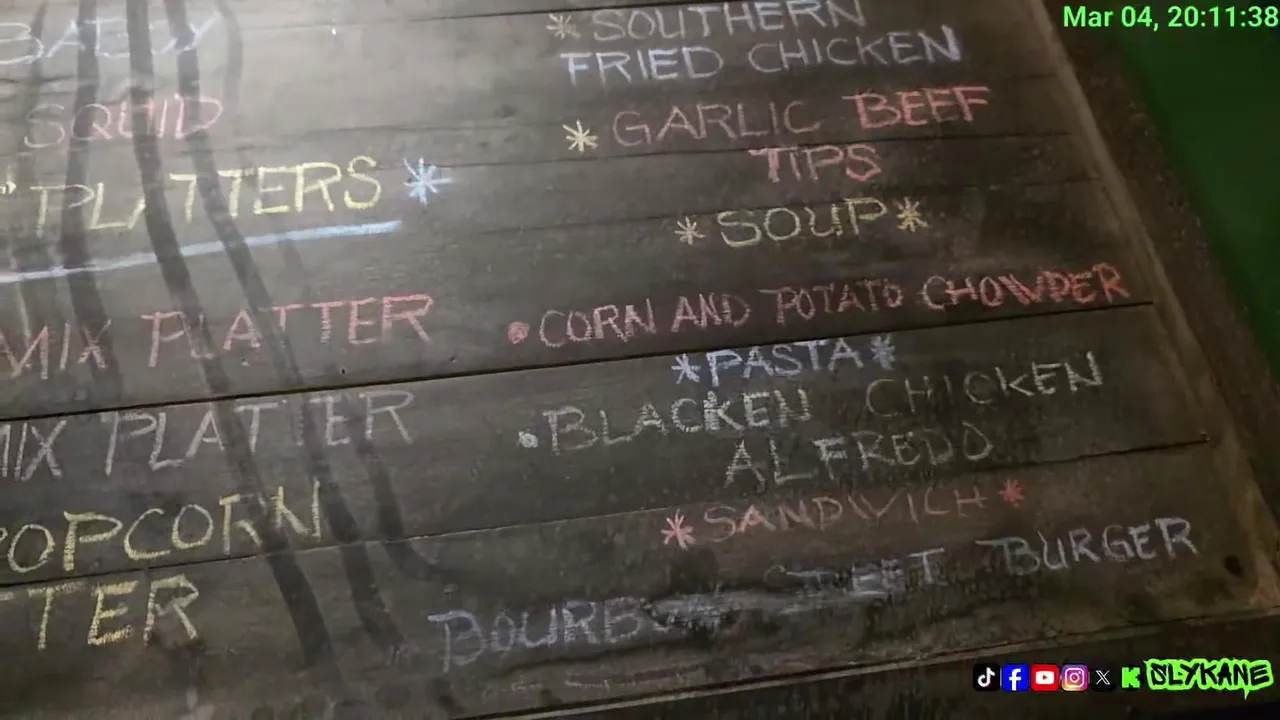 Mar 04, 20:11:38
SQUID
PLATTERS *
MIX PLATTER
MIX PLATTER
POPCORN
TTER
* SOUTHERN
FRIED CHICKEN
* GARLIC BEEF
TIPS
* SOUP *
• CORN AND POTATO CHOWDER
* PASTA *
• BLACKEN CHICKEN
ALFREDO
* SANDWICH *
BURGER
SLYKANE